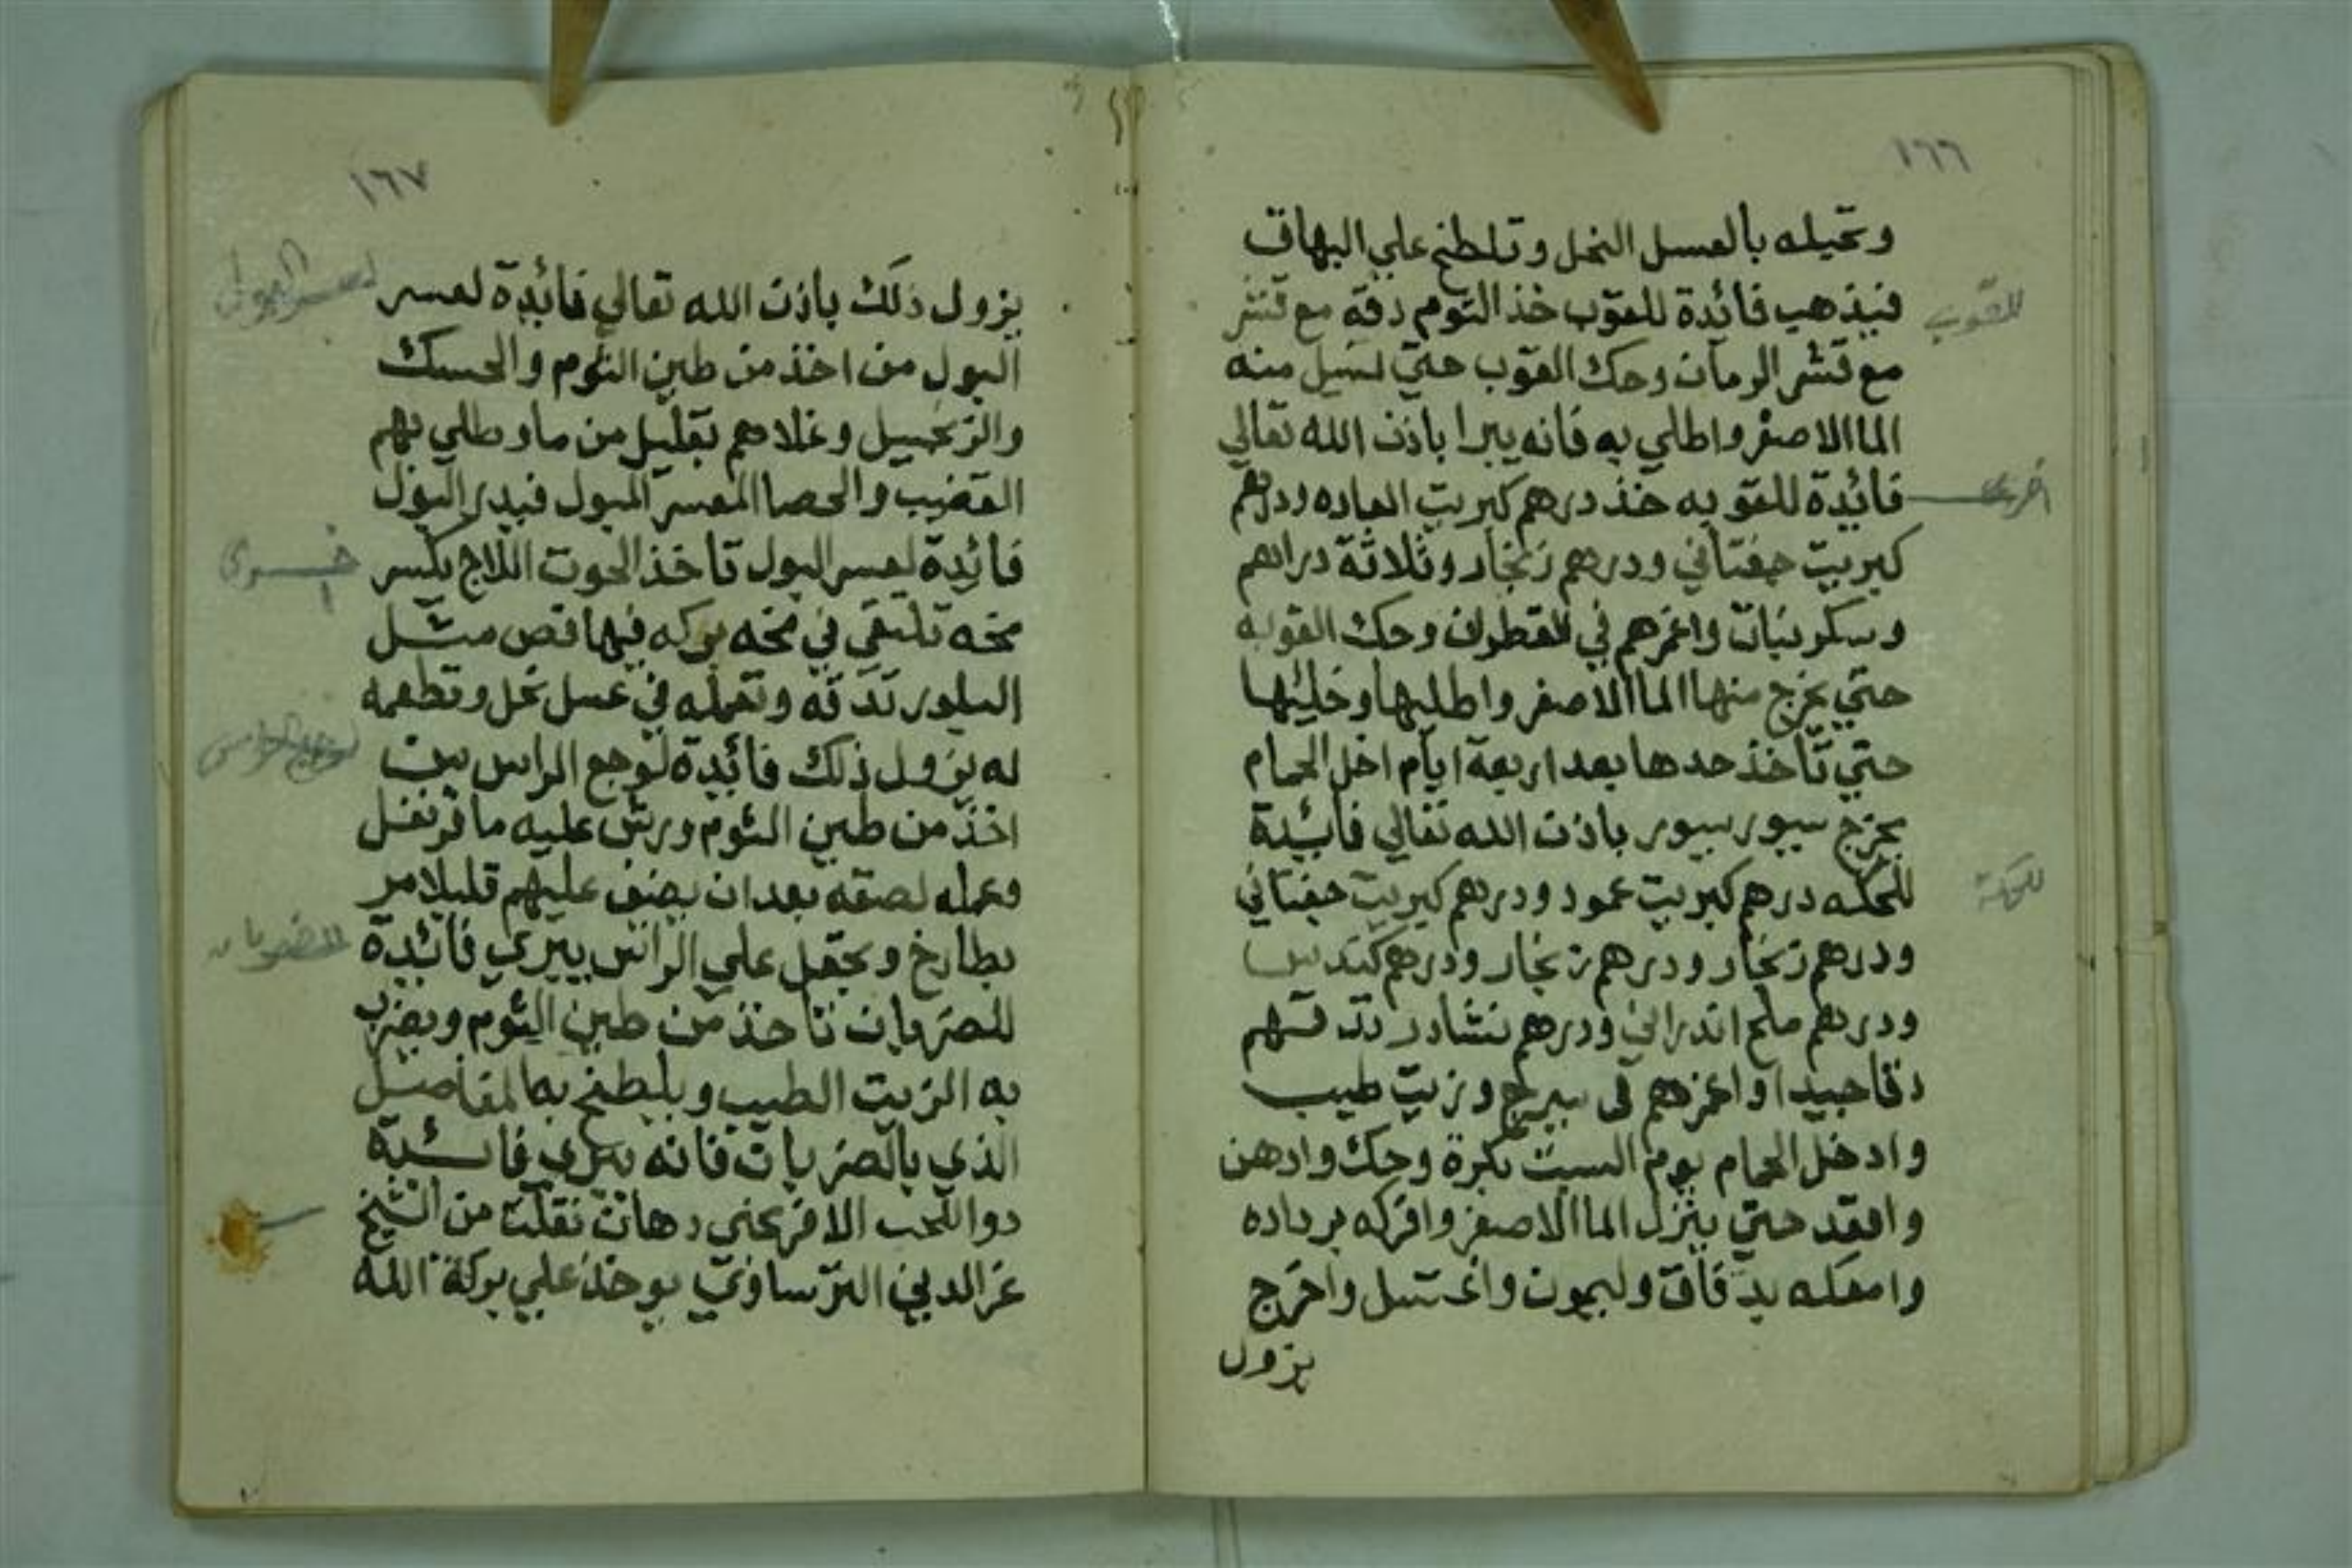 ١٦٦
وتحيله بالعسل النحل وتلطخ علي البهاق
فيذهب فائدة للقوب خذ التوم دقه مع قشر
مع قشر الرمان وحك القوب حتي تسيل منه
الما الاصفر واطلي به فانه يبرا باذن الله تعالي
فائدة للقوبه خذ درهم كبريت العاده ودرهم
كبريت جفتاني ودرهم زنجار وثلاثة دراهم
وسكر نبات واغمرهم في القطران وحك القوبه
حتي يخرج منها الما الاصفر واطليها وخليها
حتي تاخذ حدها بعد اربعة ايام ادخل الحمام
يخرج سيور سيور باذن الله تعالي فائدة
للحكه درهم كبريت عمود ودرهم كبريت جفتاني
ودرهم زنجار ودرهم زنجار ودرهم كندس
ودرهم ملح اندراني ودرهم نشادر تدقهم
دقا جيدا واغمرهم في سيرج وزيت طيب
وادخل الحمام يوم السبت بكرة وحك وادهن
واقعد حتي ينزل الما الاصفر وافركه برداده
وامعكه بدقاق وليمون واغتسل واخرج
يزول
للقوب
اخرى
للحكة
١٦٧
يزول ذلك باذن الله تعالي فائدة لعسر
البول من اخذ من طين التوم والحسك
والزنجبيل وغلاهم بقليل من ما وطلي بهم
القضيب والحصا المعسر المبول فيدر البول
فائدة لعسر البول تاخذ الحوت اللاج بكسر
مخه تلتقي في مخه بركه فيها فص مثل
البلور تدقه وتعمله في عسل نحل وتطعمه
له يزول ذلك فائدة لوجع الراس من
اخذ من طين التوم ورش عليه ما قرنفل
وعمله لصقه بعد ان يضف عليهم قليلا مر
بطارخ ويجعل علي الراس يبري فائدة
للضربان تاخذ من طين التوم ويضرب
به الزيت الطيب ويلطخ به المفاصل
الذي بالضربان فانه يبري فائدة
دوا للحب الافرنجي دهان نقلت من الشيخ
عز الدين البرساوي يوخذ علي بركة الله
لعسر البول
اخرى
لوجع الراس
للضربان